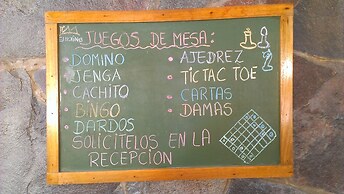 JUEGOS DE MESA:
• DOMINO
• JENGA
• CACHITO
• BINGO
• DARDOS
• AJEDREZ
• TIC TAC TOE
• CARTAS
• DAMAS
SOLICÍTELOS EN LA
RECEPCIÓN